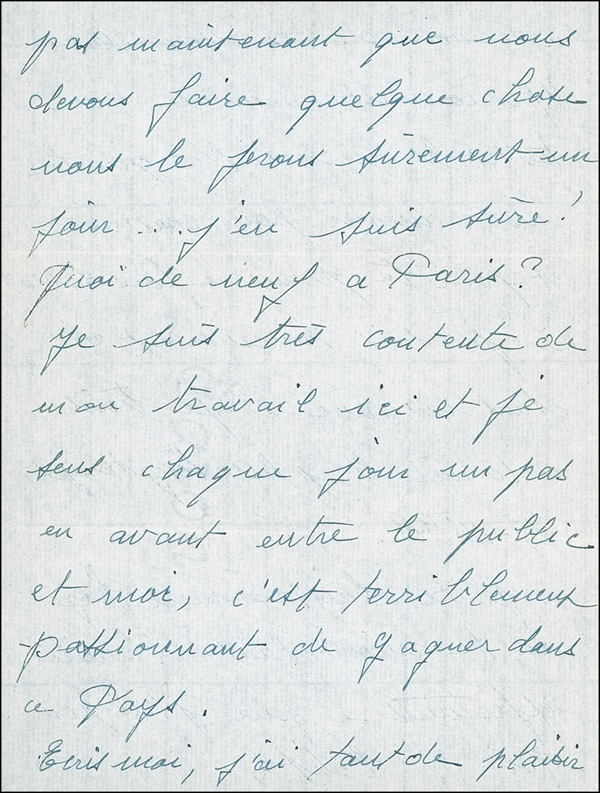 pas maintenant que nous
devons faire quelque chose
nous le ferons sûrement un
jour... j'en suis sûre!
Quoi de neuf a Paris?
Je suis très contente de
mon travail ici et je
sens chaque jour un pas
en avant entre le public
et moi, c'est terriblement
passionnant de gagner dans
ce Pays.
Ecris moi, j'ai tant de plaisir